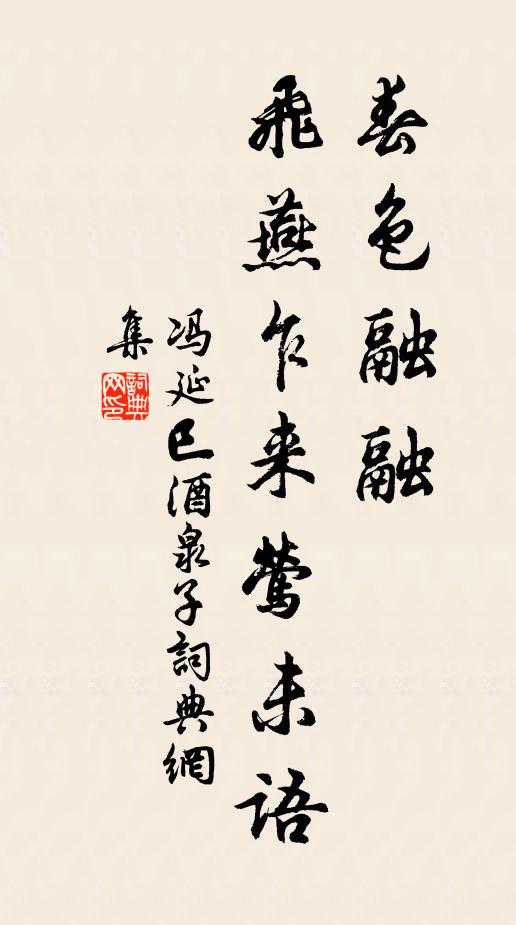 春色融融
飛燕乍来鶯未語
冯延巳酒泉子詞典網
集
詞典
网印